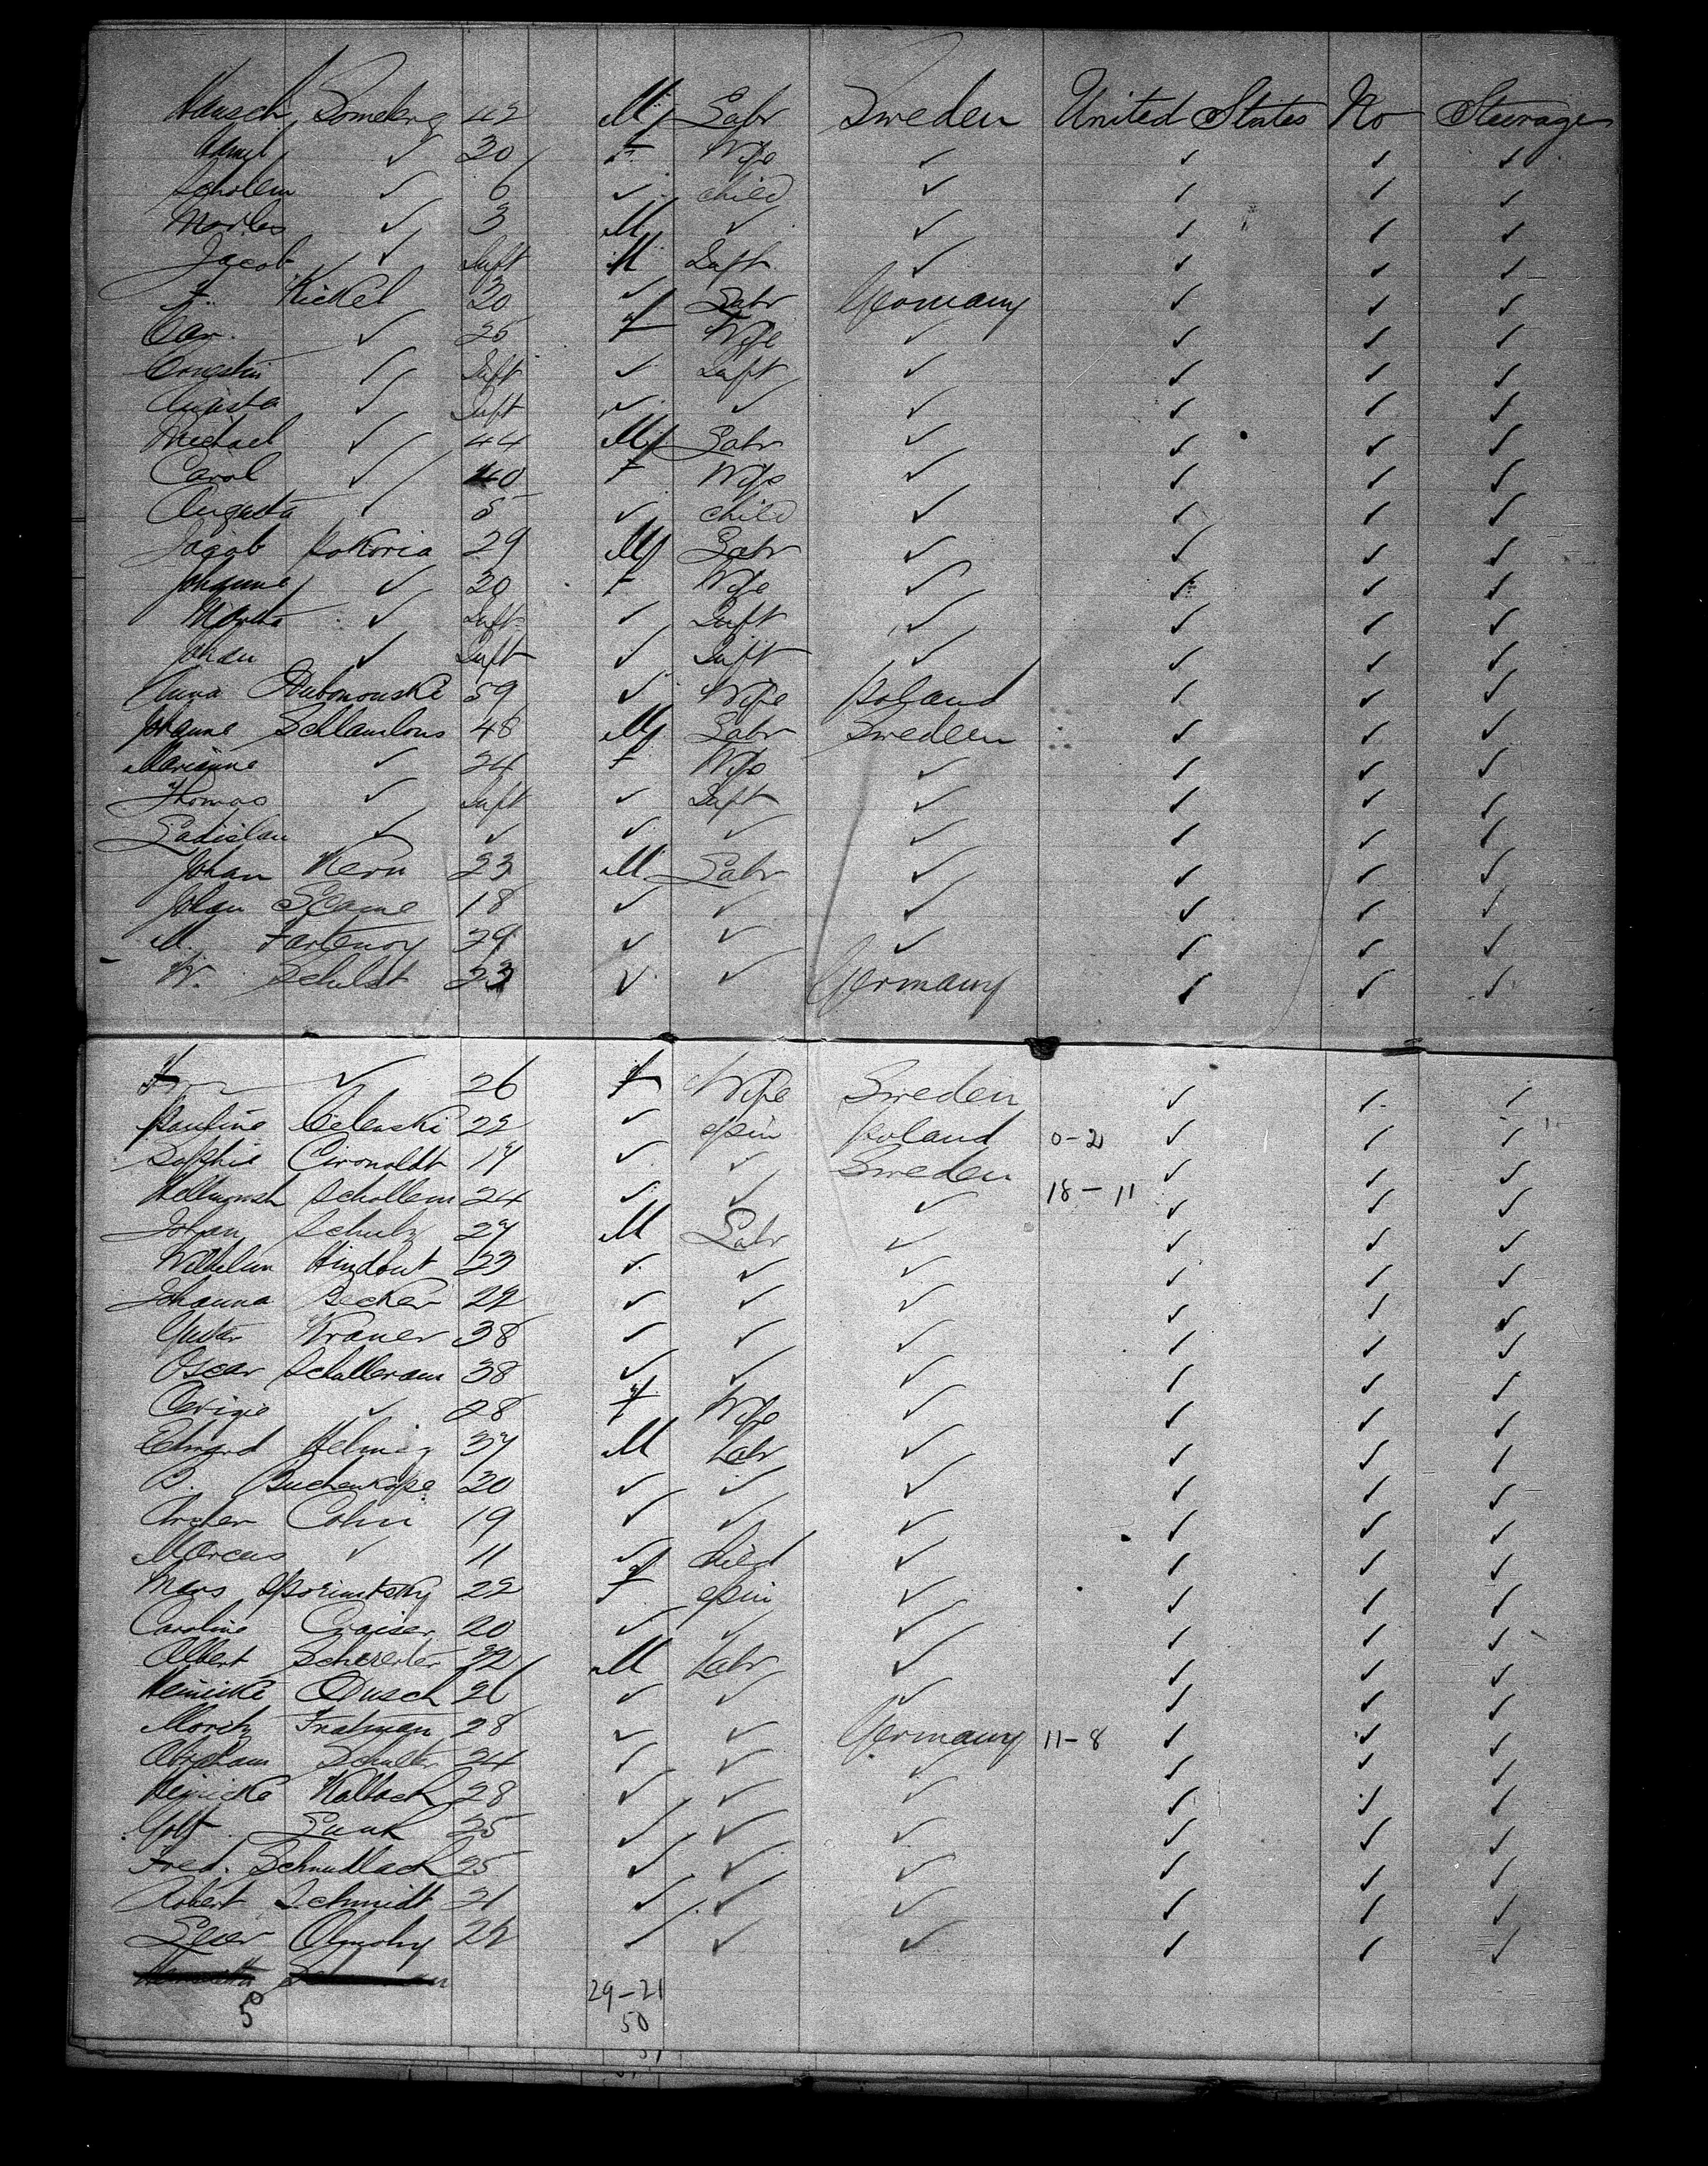 Hausch Someberg 42 M Labr Sweden United States No Steerage
✓ 30 F Wife ✓ ✓ ✓ ✓
Scholem ✓ 6 ✓ child ✓ ✓ ✓ ✓
✓ 3 M ✓ ✓ ✓ ✓ ✓
Jacob ✓ Inft M Inft ✓ ✓ ✓ ✓
F. Kickel 30 ✓ Labr Germany ✓ ✓ ✓
Car. ✓ 25 F Wife ✓ ✓ ✓ ✓
Ernestin ✓ Inft ✓ Inft ✓ ✓ ✓ ✓
Augusta ✓ Inft ✓ ✓ ✓ ✓ ✓ ✓
Michael ✓ 44 M Labr ✓ ✓ ✓ ✓
Carol ✓ 40 F Wife ✓ ✓ ✓ ✓
Augusta ✓ 5 ✓ child ✓ ✓ ✓ ✓
Jacob Pokoria 29 M Labr ✓ ✓ ✓ ✓
Johanne ✓ 30 F Wife ✓ ✓ ✓ ✓
Martha ✓ Inft ✓ Inft ✓ ✓ ✓ ✓
Johan ✓ Inft ✓ Inft ✓ ✓ ✓ ✓
Anna Dubonouski 59 ✓ Wife Poland ✓ ✓ ✓
Johanne Schlamlous 48 M Labr Swedeen ✓ ✓ ✓
Marianne ✓ 24 F Wife ✓ ✓ ✓ ✓
Thomas ✓ Inft ✓ Inft ✓ ✓ ✓ ✓
Ladislau ✓ ✓ ✓ ✓ ✓ ✓ ✓ ✓
Johan Kern 23 M Labr ✓ ✓ ✓ ✓
Johan 18 ✓ ✓ ✓ ✓ ✓ ✓
M. Fartenoy 29 ✓ ✓ ✓ ✓ ✓ ✓
W. Schulst 23 ✓ ✓ Germany ✓ ✓ ✓
✓ 26 F Wife Sweden ✓ ✓ ✓
Pauline Celenski 22 ✓ Spin Poland 0-2 ✓ ✓ ✓
Sophie Cironoldt 17 ✓ ✓ Sweden ✓ ✓ ✓
Schollem 24 ✓ ✓ ✓ 18-11 ✓ ✓ ✓
Johan Schulz 27 M Labr ✓ ✓ ✓ ✓
Wilhelm Hindout 23 ✓ ✓ ✓ ✓ ✓ ✓
Johanna Becker 22 ✓ ✓ ✓ ✓ ✓ ✓
Gustav Kraner 38 ✓ ✓ ✓ ✓ ✓ ✓
Oscar Schulleram 38 ✓ ✓ ✓ ✓ ✓ ✓
✓ 28 F Wife ✓ ✓ ✓ ✓
Edward Helmig 37 M Labr ✓ ✓ ✓ ✓
B. Buchenkope 30 ✓ ✓ ✓ ✓ ✓ ✓
Archer Cohn 19 ✓ ✓ ✓ ✓ ✓ ✓
Marcus ✓ 11 ✓ Child ✓ ✓ ✓ ✓
22 F Spin ✓ ✓ ✓ ✓
Caroline Craiser 20 ✓ ✓ ✓ ✓ ✓ ✓
Albert 22 M Labr ✓ ✓ ✓ ✓
Heinicke Dusch 26 ✓ ✓ ✓ ✓ ✓ ✓
Moritz Fratman 28 ✓ ✓ Germany 11-8 ✓ ✓ ✓
Abraham Schulter 24 ✓ ✓ ✓ ✓ ✓ ✓
Heinicke Kallbach 28 ✓ ✓ ✓ ✓ ✓ ✓
25 ✓ ✓ ✓ ✓ ✓ ✓
Fred. Schmullach 25 ✓ ✓ ✓ ✓ ✓ ✓
Robert Schmidt 21 ✓ ✓ ✓ ✓ ✓ ✓
✓ ✓ ✓ ✓ ✓ ✓
29-21
50 50